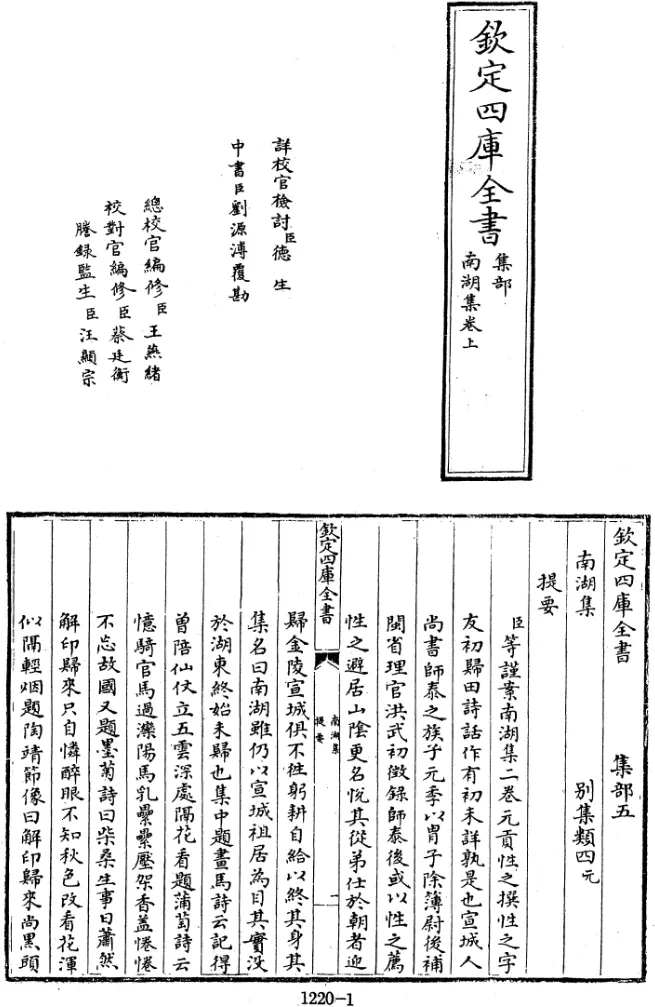 欽定四庫全書
集部
南湖集卷上
詳校官檢討臣德生
中書臣劉源溥覆勘
總校官編修臣王燕緒
校對官編修臣蔡廷衡
謄録監生臣汪顯宗
欽定四庫全書 集部五
南湖集 别集類四元
提要
臣等謹案南湖集二卷元貢性之撰性之字
友初歸田詩話作有初未詳孰是也宣城人
尚書師泰之族子元季以胄子除簿尉後補
閩省理官洪武初徴録師泰後或以性之薦
性之避居山隂更名悦其從弟仕於朝者迎
欽定四庫全書
南湖集
提要
一
歸金陵宣城俱不徃躬耕自給以終其身其
集名曰南湖雖仍以宣城祖居為目其實没
於湖東終始未歸也集中題畫馬詩云記得
曾陪仙仗立五雲深處隔花看題蒲萄詩云
憶騎官馬過灤陽馬乳纍纍壓架香蓋惓惓
不忘故國又題墨菊詩曰柴桑生事日蕭然
解印歸來只自憐醉眼不知秋色改看花渾
似隔輕烟題陶靖節像曰解印歸來尚黒頭
1220-1